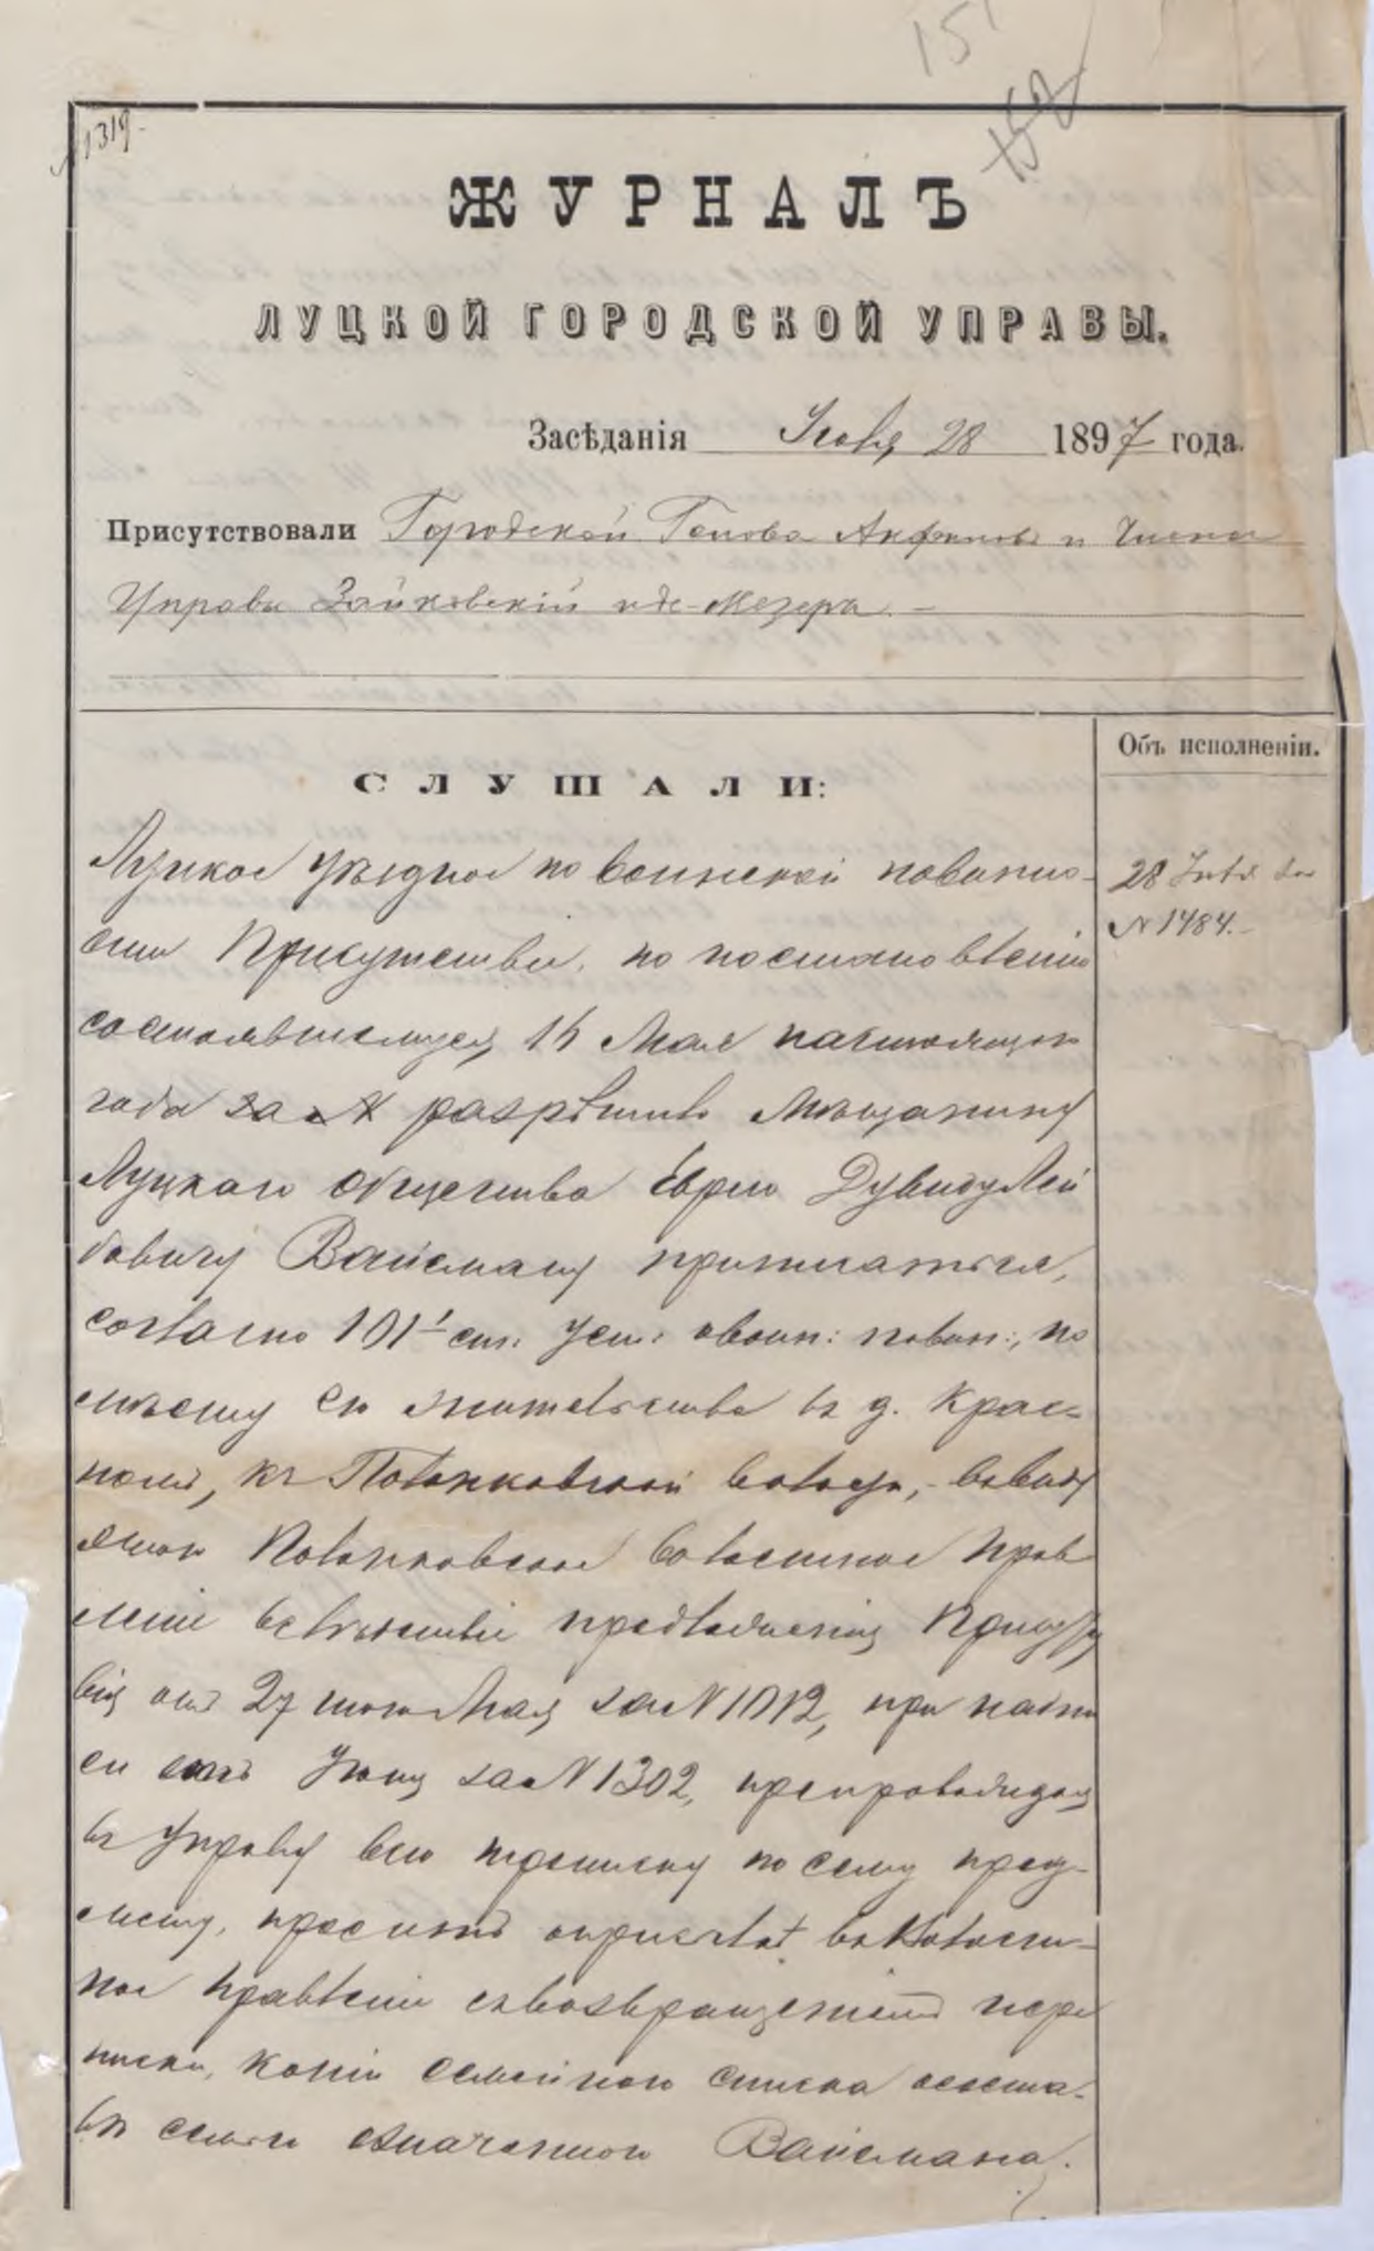 151
152
№ 1319.
ЖУРНАЛЪ
ЛУЦКОЙ ГОРОДСКОЙ УПРАВЫ.
Засѣданія Іюля 28 1897 года.
Присутствовали Городской Голова Акфиновъ и Члены
Управы Зайковскій и де-Мезеръ. —
СЛУШАЛИ:
Объ исполненіи.
Луцкое уѣздное по воинской повинно-
сти Присутствіе, по постановленію
состоявшемуся 16 Мая настоящаго
года за № разрѣшивъ мѣщанину
Луцкаго общества Еврею Дувиду Лей
бовичу Вайсману приписаться,
согласно 101¹ ст. Уст. о воин: повин:, по
мѣсту его жительства въ д. Крас-
номъ, къ Полонковской волости, - ввиду
этого Полонковское волостное Прав
леніе вслѣдствіе предложенія Присутст
вія отъ 27 того Мая за № 1012, при надпи
си отъ Іюня за № 1302, препровождая
въ Управу всю переписку по сему пред-
мету, проситъ о присылкѣ въ Волост-
ное Правленіе съ возвращеніемъ пере
писки, копіи семейнаго списка о соста-
вѣ семьи означеннаго Вайсмана.
28 Іюля за
№ 1484. -